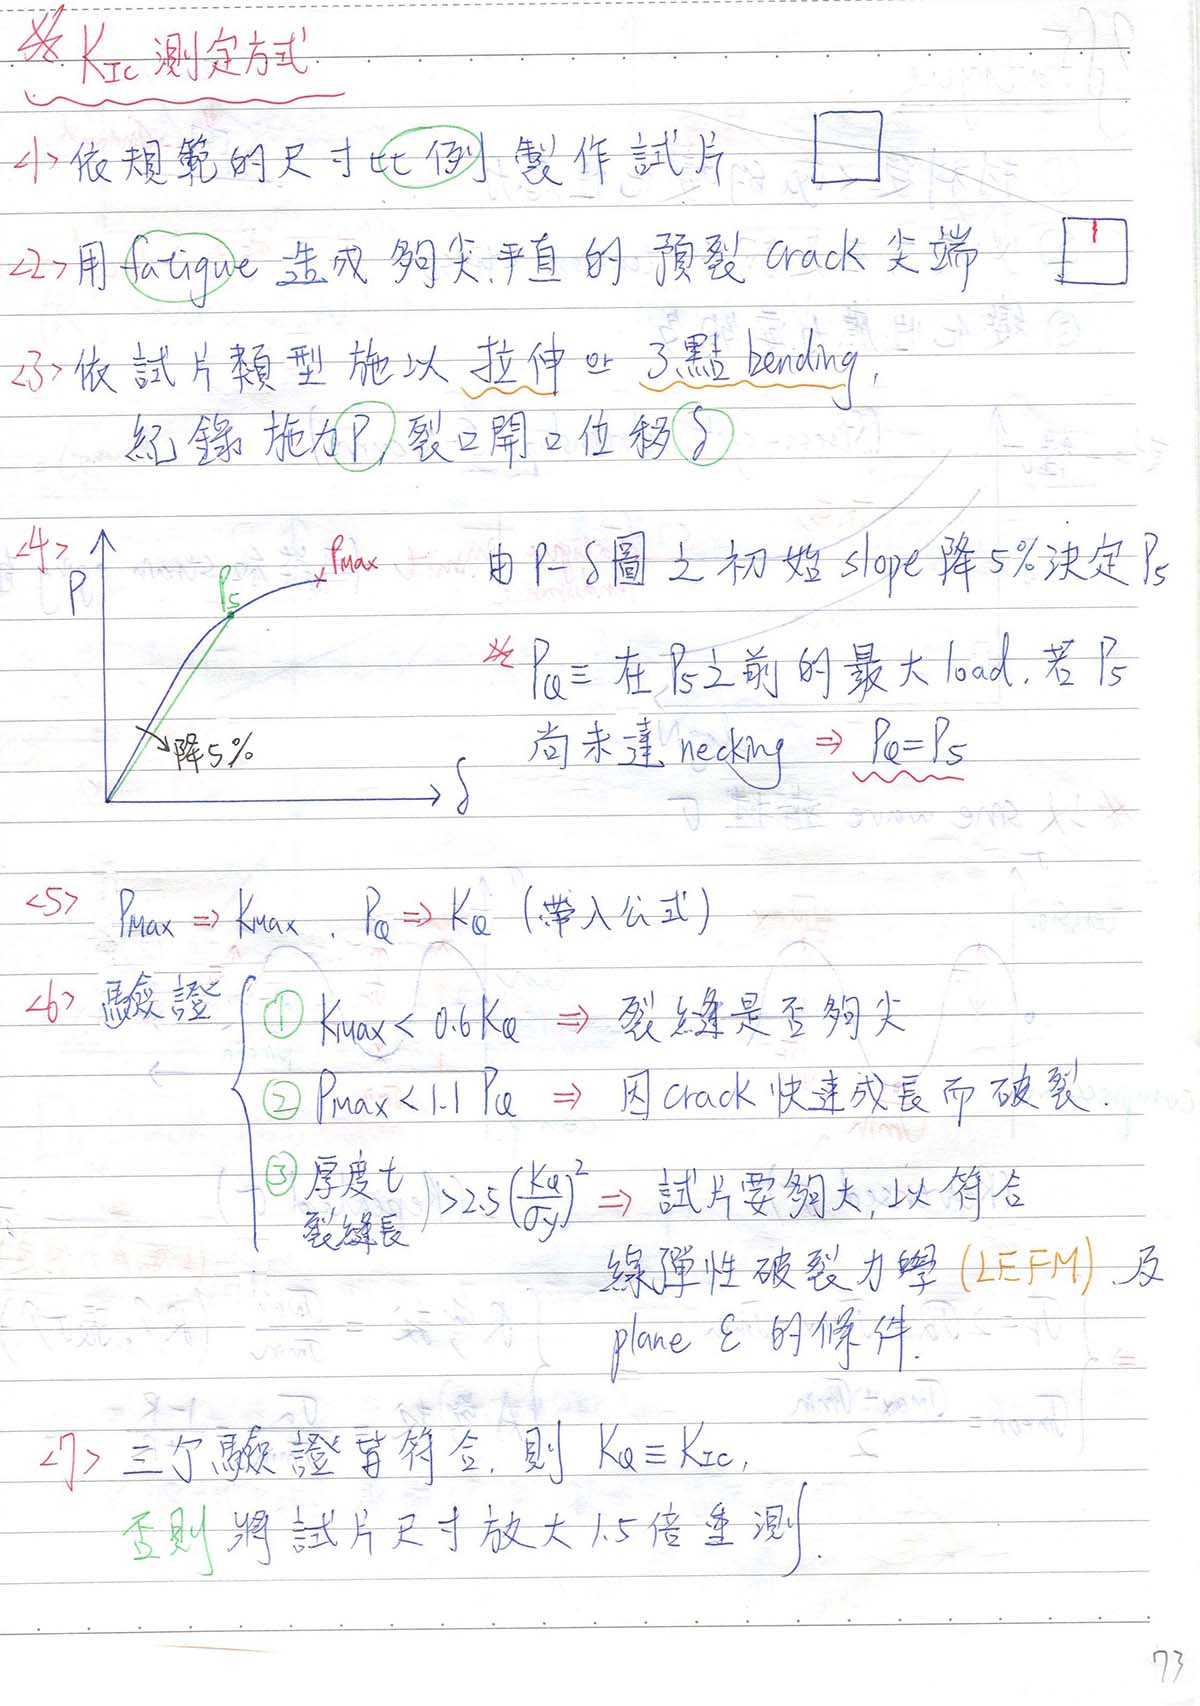 ※ KIC 測定方式
<1> 依規範的尺寸比例製作試片
<2> 用 fatigue 造成夠尖、平直的預裂 crack 尖端
<3> 依試片類型施以拉伸 or 3點 bending,
紀錄施力P, 裂口開口位移 δ
<4> P P5 PMax 降5% δ
由 P-δ圖之初始 slope 降5%決定 P5
※ PQ≡在P5之前的最大 load. 若 P5
尚未達 necking ⇒ PQ=P5
<5> PMax ⇒ KMax . PQ ⇒ KQ (帶入公式)
<6> 驗證
① KMax < 0.6 KQ ⇒ 裂縫是否夠尖
② PMax < 1.1 PQ ⇒ 因 crack 快速成長而破裂.
③ 厚度 t 裂縫長 ) > 2.5 (KQ/σy)² ⇒ 試片要夠大, 以符合
線彈性破裂力學 (LEFM) 及
plane ε 的條件.
<7> 三个驗證皆符合, 則 KQ ≡ KIC,
否則 將試片尺寸放大 1.5 倍重測.
73